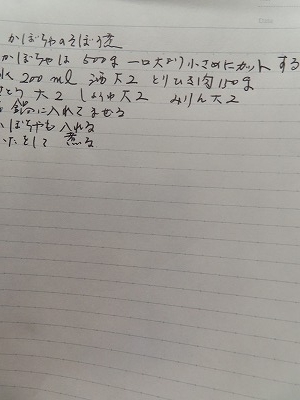 かぼちゃのそぼろ煮
かぼちゃは 500g 一口大より小さめにカットする
水 200ml 酒大2 とりひき肉150g
さとう 大2 しょうゆ大2 みりん大2
鍋に入れてまぜる
かぼちゃも入れる
ふたをして 煮る